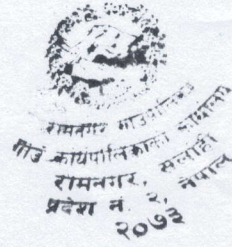 रामनगर गाउँपालिका
गाउँ कार्यपालिकाको कार्यालय
रामनगर, सर्लाही
प्रदेश नं. २, नेपाल
२०७३